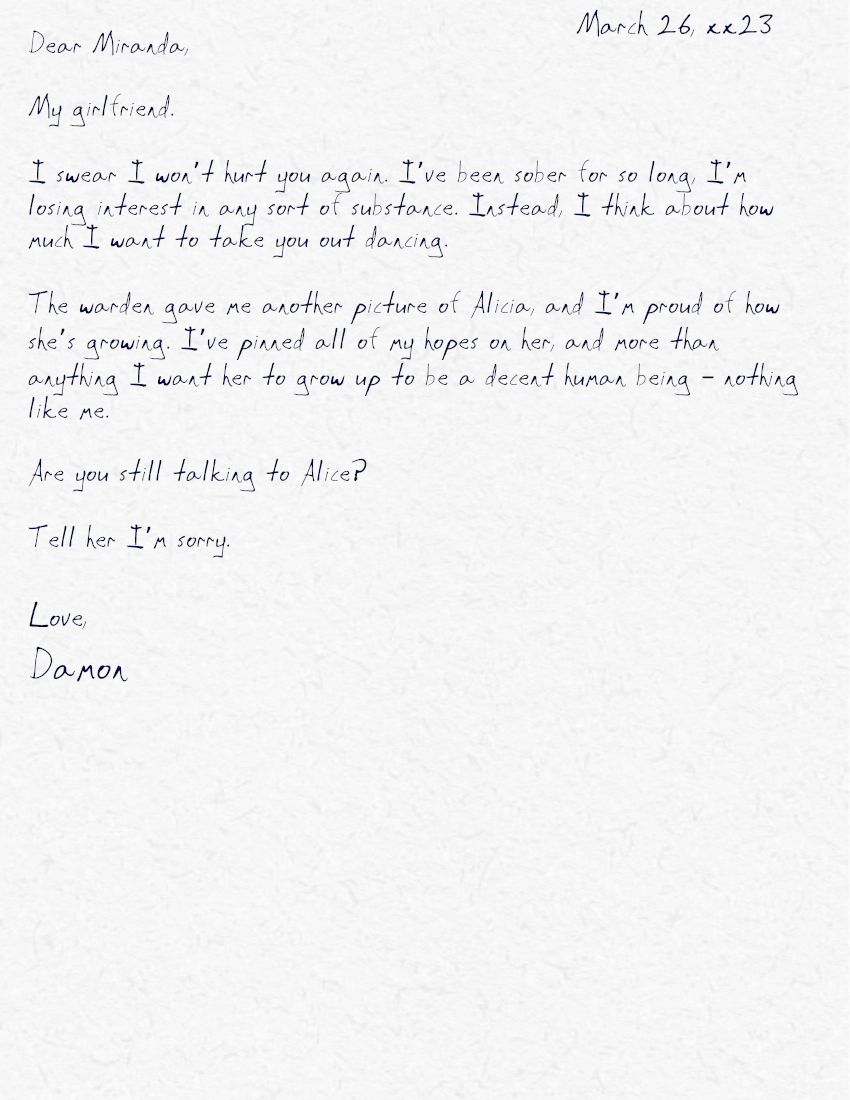 March 26, xx23
Dear Miranda,
My girlfriend.
I swear I won't hurt you again. I've been sober for so long, I'm
losing interest in any sort of substance. Instead, I think about how
much I want to take you out dancing.
The warden gave me another picture of Alicia, and I'm proud of how
she's growing. I've pinned all of my hopes on her, and more than
anything I want her to grow up to be a decent human being - nothing
like me.
Are you still talking to Alice?
Tell her I'm sorry.
Love,
Damon